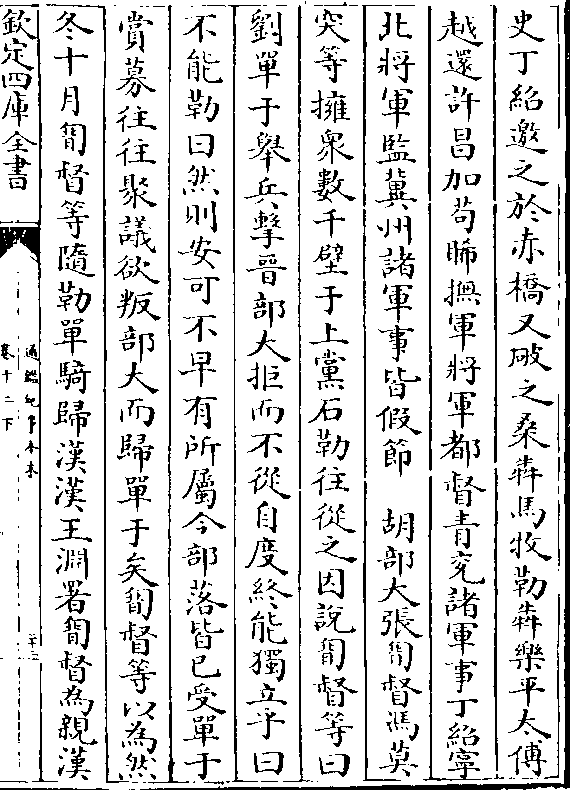 史丁紹邀之於赤橋又破之桑犇馬牧勒犇樂平太傅
越還許昌加苟晞撫軍將軍都督青兖諸軍事丁紹寧
北將軍監冀州諸軍事皆假節　胡部大張㔨督馮莫
突等擁衆數千壁于上黨石勒往從之因說㔨督等曰
劉單于舉兵擊晉部大拒而不從自度終能獨立乎曰
不能勒曰然則安可不早有所屬今部落皆已受單于
賞募往往聚議欲叛部大而歸單于矣㔨督等以為然
冬十月㔨督等隨勒單騎歸漢漢王淵署㔨督為親漢
欽定四庫全書
通鑑紀事本末
卷十二下